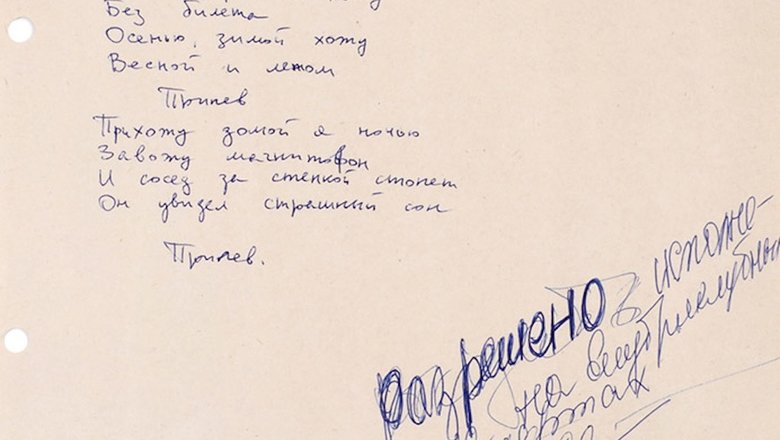 Без билета
Осенью, зимой хожу
Весной и летом
Припев
Прихожу домой я ночью
Завожу магнитофон
И сосед за стенкой стонет
Он увидел страшный сон
Припев.
Разрешено
на внутриклубных